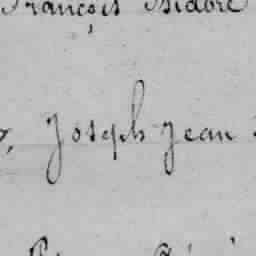 François Isidore
Joseph Jean